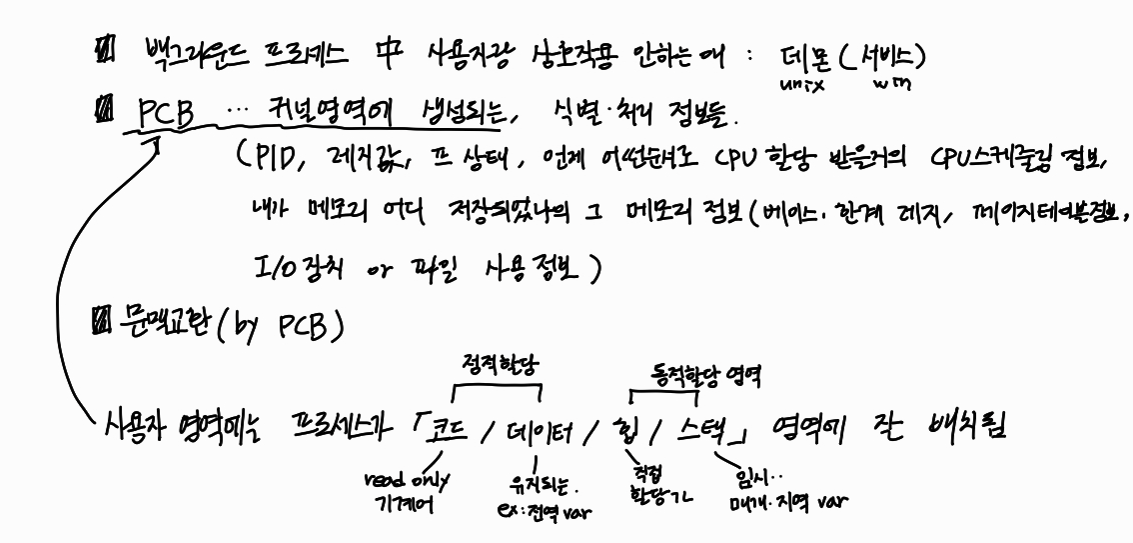 백그라운드 프로세스 中 사용자랑 상호작용 안하는애 : 데몬 (서비스)
unix win
PCB ··· 커널영역에 생성되는, 식별·처리 정보들.
(PID, 레지값, 프 상태, 언제 어떤순서로 CPU 할당 받을거의 CPU스케줄링 정보,
내가 메모리 어디 저장되었나의 그 메모리 정보 (베이스·한계 레지, 페이지테이블정보,
I/O 장치 or 파일 사용 정보)
문맥교환 (by PCB)
정적할당 동적할당 영역
사용자 영역에는 프로세스가 「코드 / 데이터 / 힙 / 스택」 영역에 잔 배치됨
read only 기계어
유지되는. ex: 전역 var
직접 할당
임시·· 매개·지역 var